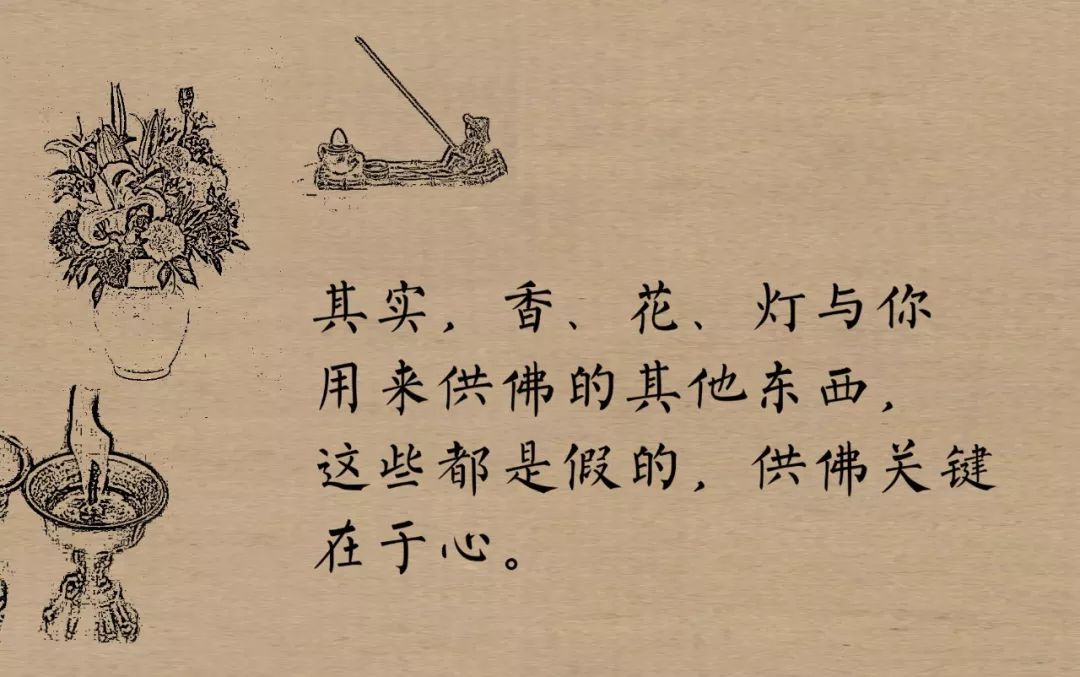 其实，香、花、灯与你
用来供佛的其他东西，
这些都是假的，供佛关键
在于心。